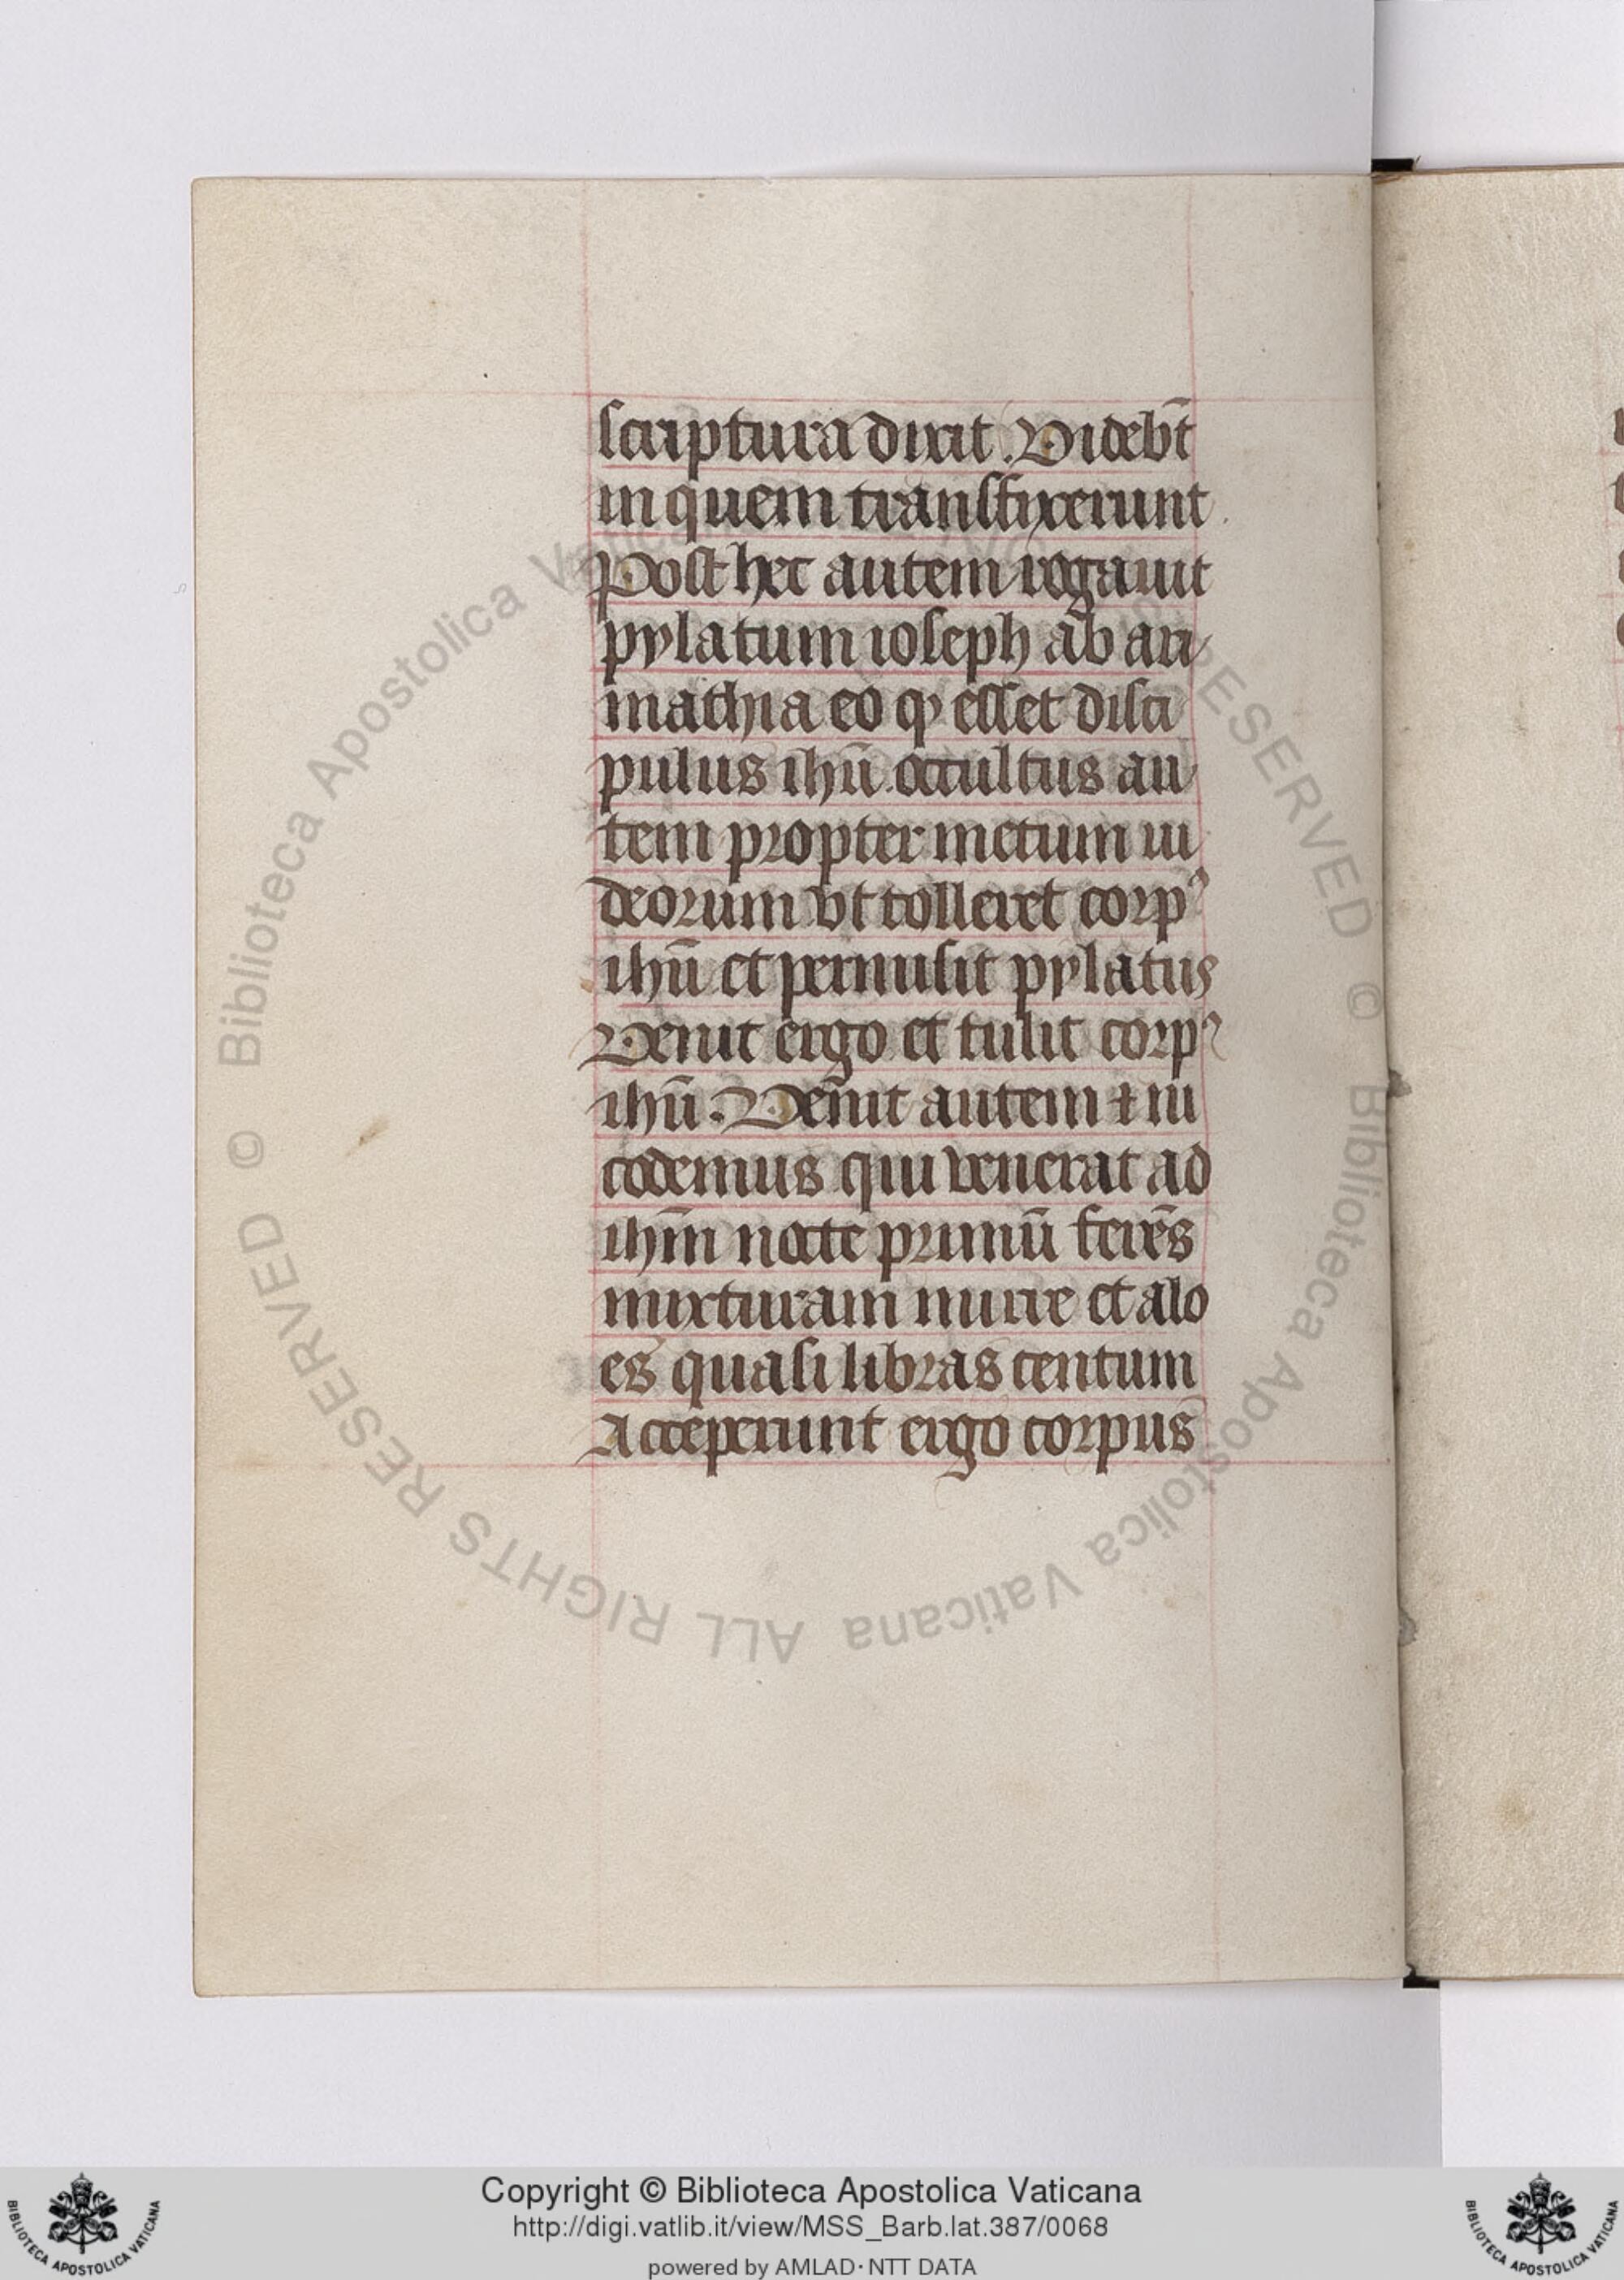 scriptura dixit. Videbt̄
in quem transfixerunt.
Post hec autem rogauit
pylatum ioseph ab ari
mathia eo qꝫ esset disci
pulus ihū. occultus au
tem propter metum iu
deorum vt tolleret corpꝰ
ihū et permisit pylatus
Venit ergo et tulit corpꝰ
ihū. Venit autem ⁊ ni
codemus qui venerat ad
ihm̄ nocte primū ferēs
mixturam mirre et alo
es quasi libras centum
Acceperunt ergo corpus
© Biblioteca Apostolica Vaticana ALL RIGHTS RESERVED © Biblioteca Apostolica Vaticana ALL RIGHTS RESERVED
Copyright © Biblioteca Apostolica Vaticana
http://digi.vatlib.it/view/MSS_Barb.lat.387/0068
powered by AMLAD·NTT DATA
BIBLIOTECA APOSTOLICA VATICANA
BIBLIOTECA APOSTOLICA VATICANA